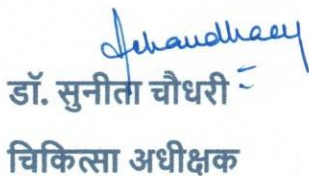 डॉ. सुनीता चौधरी
चिकित्सा अधीक्षक